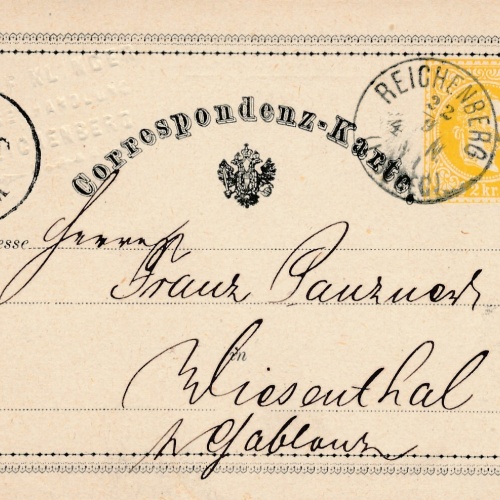 Correspondenz-Karte.
REICHENBERG
2 kr
esse Herrn
Franz
in
Wiesenthal
p Gablonz